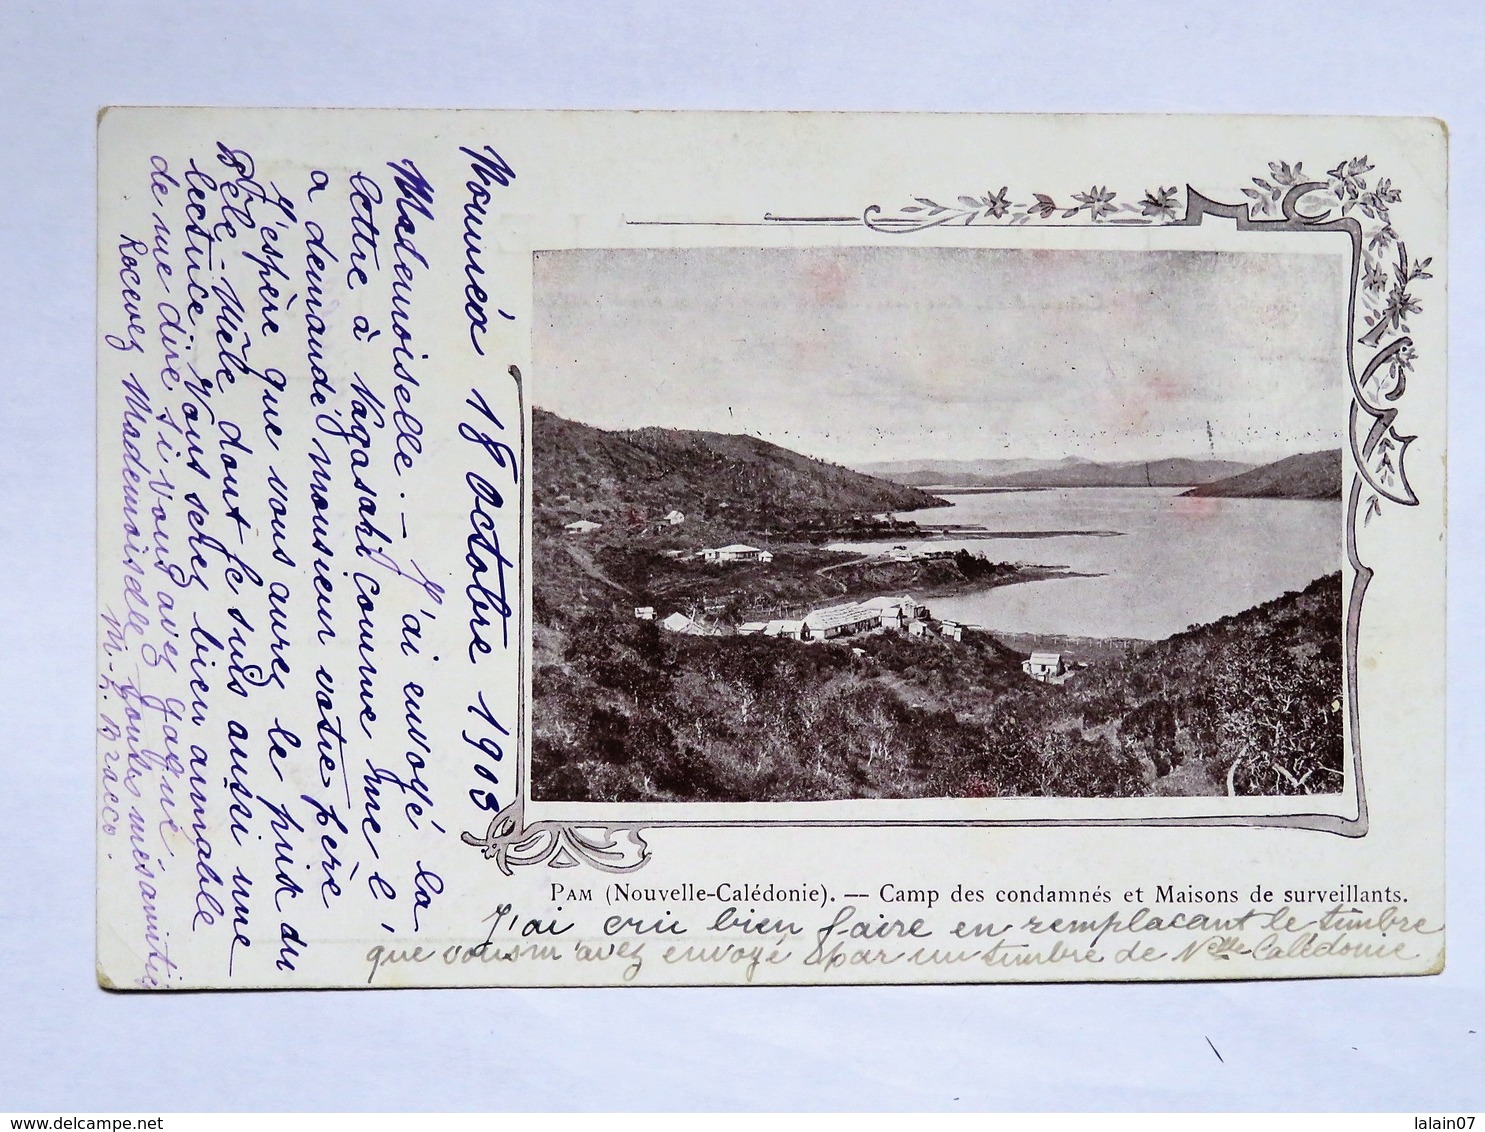 Nouméa 18 Octobre 1903
Mademoiselle. — J'ai envoyé la
lettre à Nagasaki comme me l'
a demandé monsieur votre père
J'espère que vous aurez le prix du
Pêle-Mêle dont je suis aussi une
lectrice. Vous serez bien aimable
de me dire si vous avez gagné
Recevez Mademoiselle toutes mes amitiés
M-L. Bracco.
PAM (Nouvelle-Calédonie). — Camp des condamnés et Maisons de surveillants.
J'ai cru bien faire en remplacant le timbre
que vous m'avez envoyé par un timbre de Nelle Calédonie
lalain07